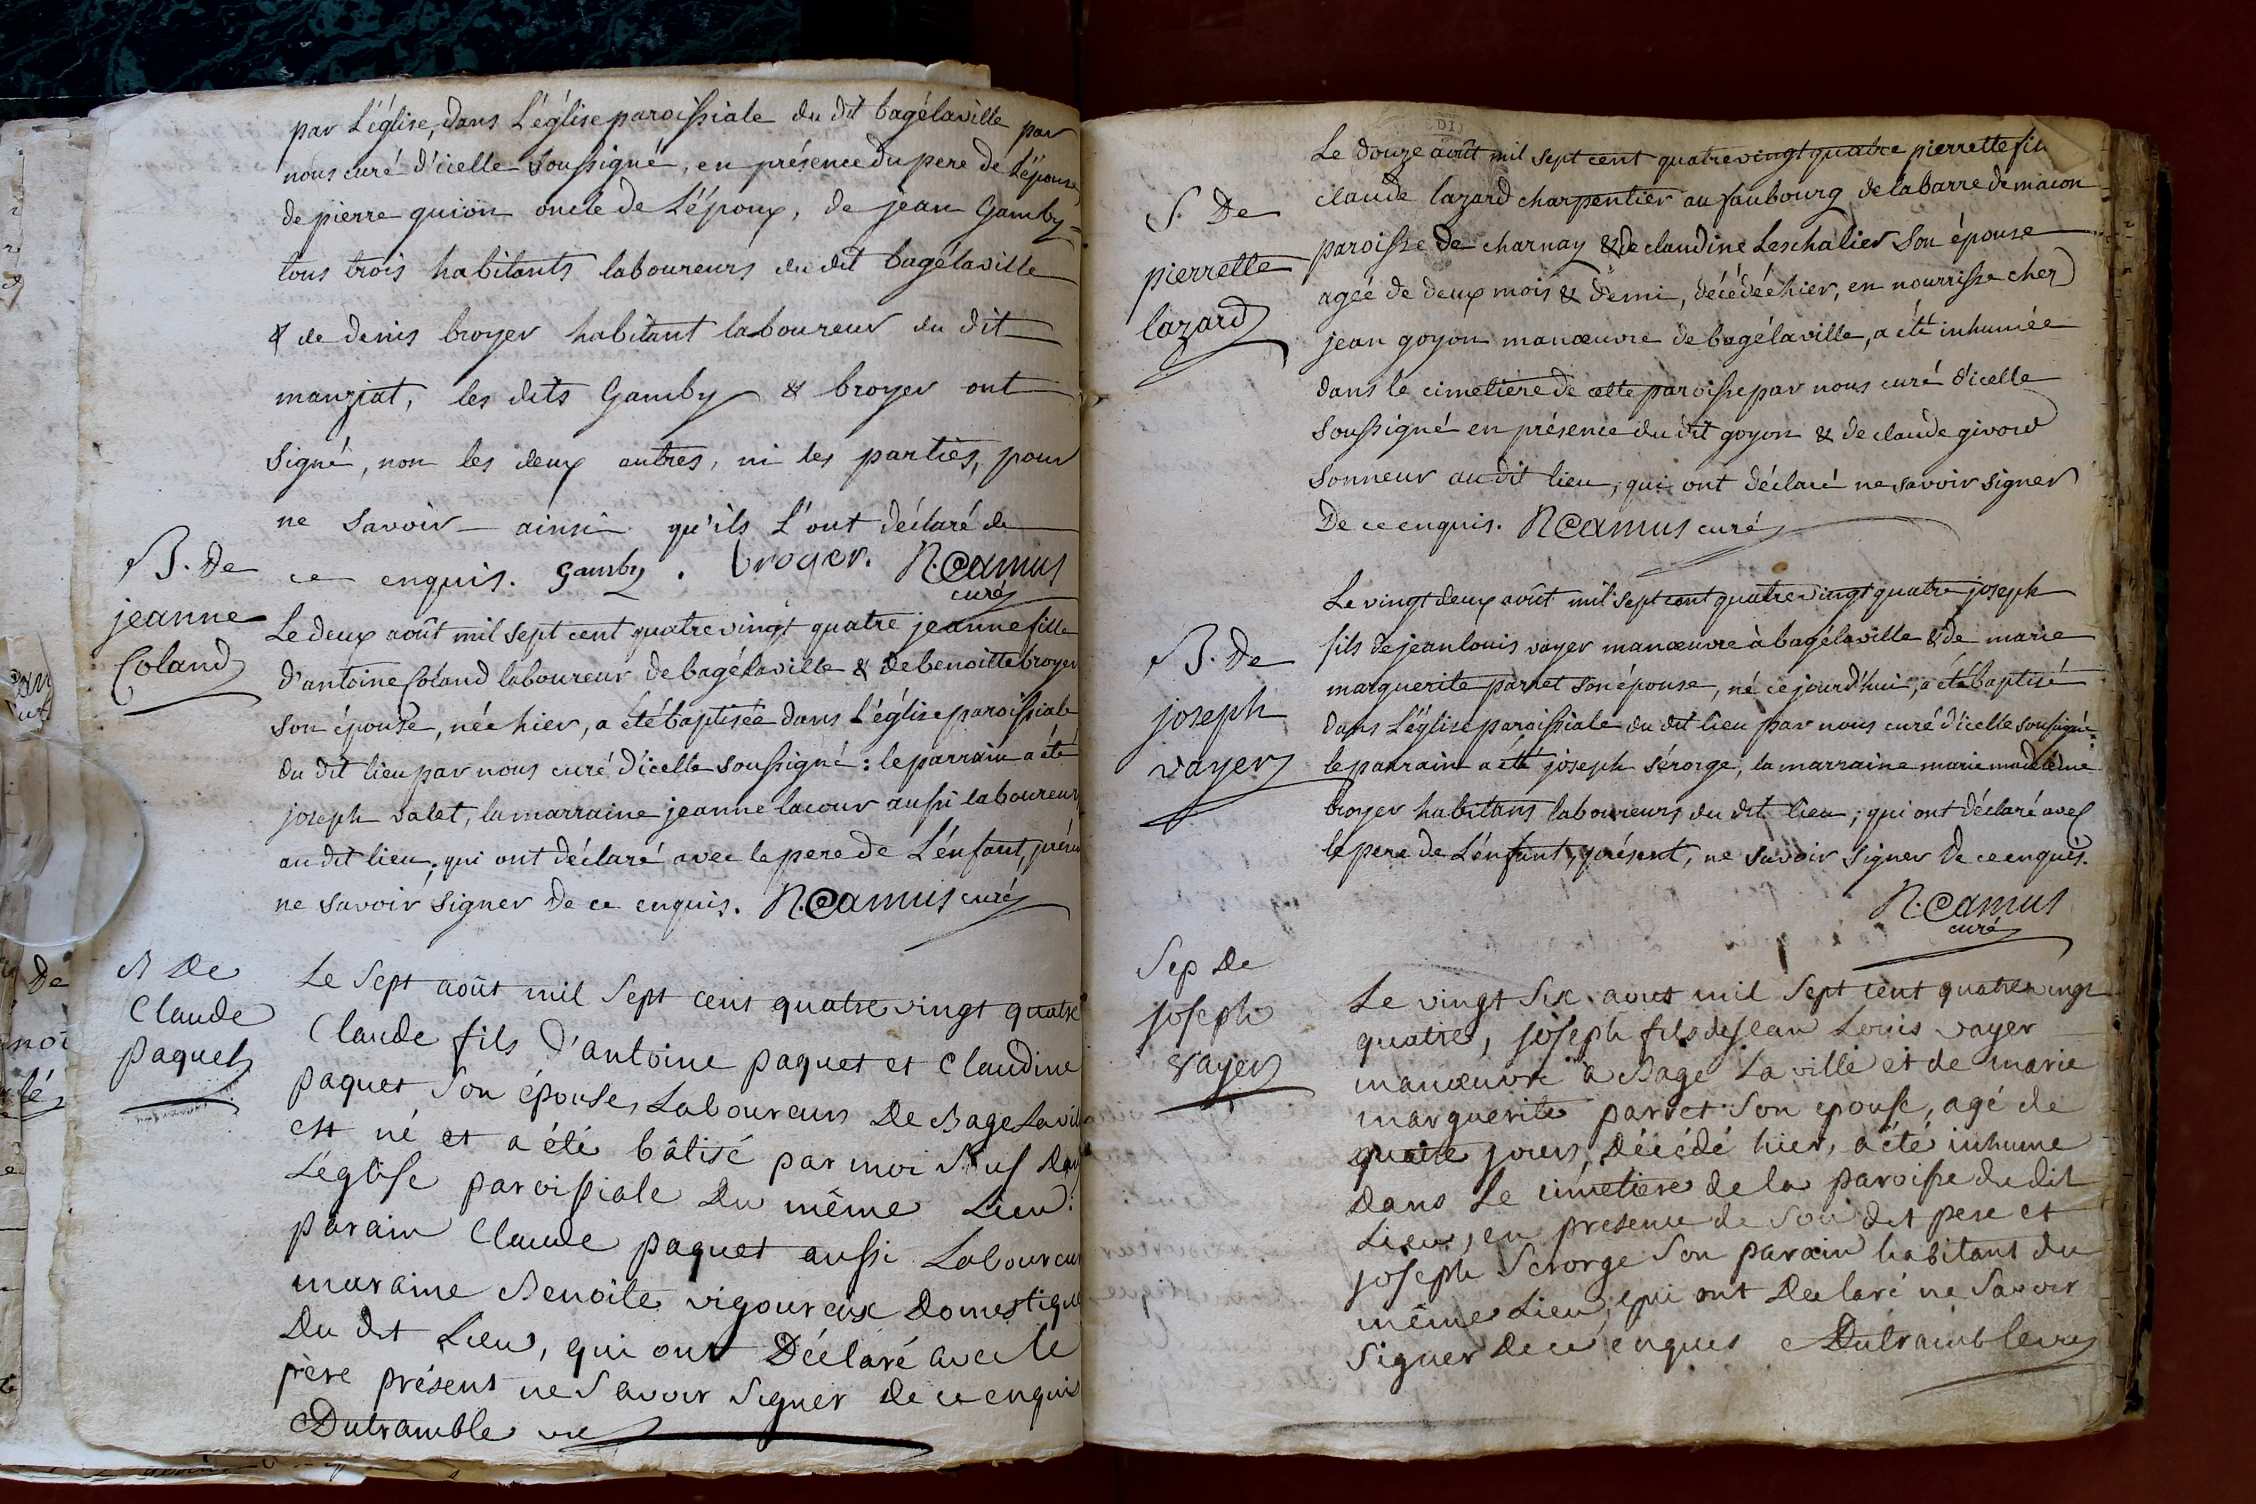 par L'église, dans L'église paroissiale du dit bagélaville par
nous curé d'icelle soussigné, en présence du pere de L'épouse,
de pierre guion oncle de L'époux, de jean Gamby
tous trois habitants laboureurs du dit bagélaville
& de denis broyer habitant laboureur du dit
manziat, les dits Gamby & broyer ont
signé, non les deux autres, ni les parties, pour
ne savoir ainsi qu'ils L'ont déclaré de
ce enquis. Gamby. broyer. N. Camus
curé
B. De
jeanne
Coland
Le deux août mil sept cent quatre vingt quatre jeanne fille
d'antoine Coland laboureur de bagélaville & de benoitte broyer
son épouse, née hier, a été baptisée dans L'église paroissiale
du dit lieu par nous curé d'icelle soussigné : le parrain a été
joseph valet, la marraine jeanne lacour aussi laboureurs
au dit lieu; qui ont déclaré avec le pere de L'enfant,
ne savoir signer de ce enquis. N. Camus curé
B De
Claude
paquet
Le Sept août mil Sept cent quatre vingt quatre
Claude fils d'antoine paquet et Claudine
paquet Son épouse, Laboureurs De Bage Laville
est né et a été bâtisé par moi Dans
L'église paroissiale Du même Lieu :
parain Claude paquet aussi Laboureur
maraine Benoîte vigoureux Domestique
Du dit Lieu, qui ont Déclaré avec le
père présent ne Savoir Signer de ce enquis
Dutramble vre
S. De
pierrette
lazard
Le douze août mil sept cent quatre vingt quatre pierrette
claude lazard charpentier au faubourg de labarre de macon
paroisse de charnay & de claudine Leschalier son épouse
agée de deux mois & demi, décédée hier, en nourrisse chez
jean goyon manœuvre de bagélaville, a été inhumée
dans le cimetière de cette paroisse par nous curé d'icelle
soussigné en présence du dit goyon & de claude givord
sonneur au dit lieu, qui ont déclaré ne savoir signer
De ce enquis. N Camus curé
B. De
joseph
vayer
Le vingt deux août mil sept cent quatre vingt quatre joseph
fils de jean louis vayer manœuvre à bagélaville & de marie
marguerite parret son épouse, né ce jourd'hui, a été baptisé
dans L'église paroissiale du dit lieu par nous curé d'icelle soussigné:
le parrain a été joseph sérorge, la marraine marie madeleine
broyer habitans laboureurs du dit lieu; qui ont déclaré avec
le pere de L'enfant, présent, ne savoir signer De ce enquis.
N. Camus
curé
Sep De
joseph
vayer
Le vingt Six aout mil Sept cent quatre vingt
quatre, joseph fils de Jean Louis vayer
manœuvre à Bage La ville et de marie
marguerite parret Son epouse, agé de
quatre jours, Décédé hier, a été inhumé
Dans Le cimetiere de la paroisse du dit
Lieu, en presence de Son dit pere et
joseph Serorge Son parain habitant du
même Lieu, qui ont Declaré ne Savoir
Signer De ce enques Dutramble vre